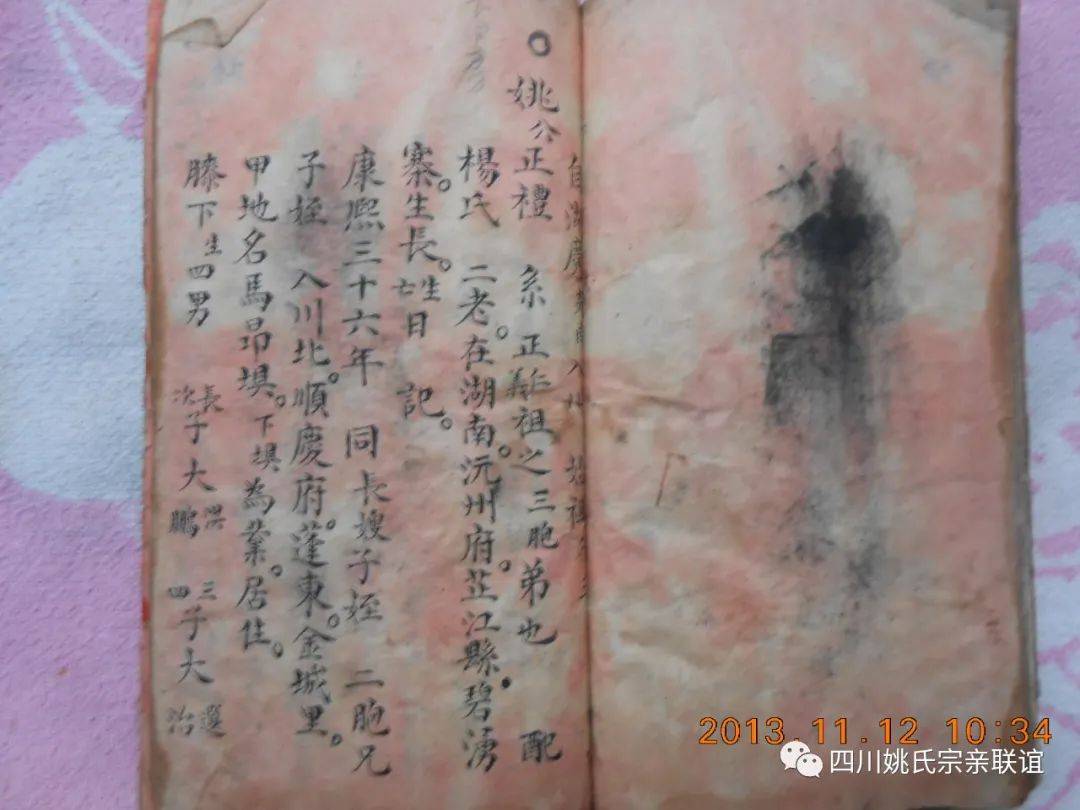 姚公正禮 系正仁義祖之三胞弟也 配
楊氏 二老。在湖南。沅州府。芷江縣。碧湧
寨。生長。生亡日 記。
康熙三十六年 同長嫂子姪 二胞兄
子姪 入川北。順慶府。蓬東。金城里。
甲地名馬昂埧。下埧為業。居住。
膝下生四男 長次子大洪鵬 三四子大選治
2013.11.12 10:34
四川姚氏宗亲联谊